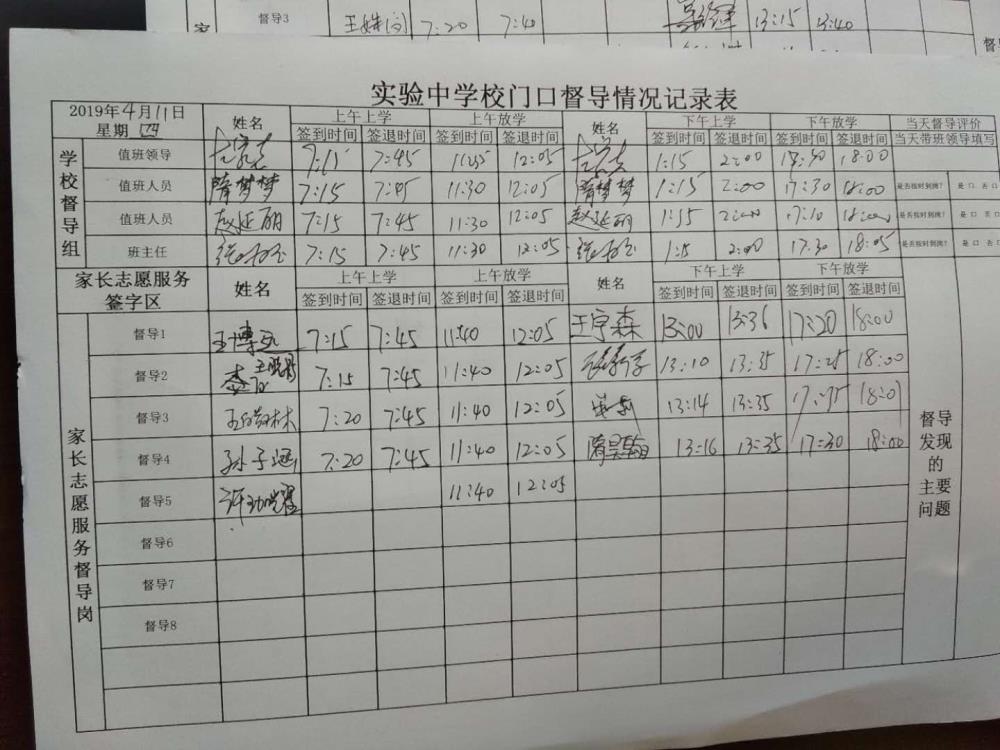 家 督导3 7:20 7:40 13:15 13:40
督
实验中学校门口督导情况记录表
2019年4月11日 星期四 姓名 上午上学 上午放学 姓名 下午上学 下午放学 当天督导评价
签到时间 签退时间 签到时间 签退时间 签到时间 签退时间 签到时间 签退时间 当天带班领导填写
学校督导组
值班领导 7:15 7:45 11:25 12:05 1:15 2:00 17:30 18:00
值班人员 隋梦梦 7:15 7:45 11:30 12:05 隋梦梦 1:15 2:00 17:30 18:00 是否按时到岗? 是口 否口
值班人员 赵延丽 7:15 7:45 11:30 12:05 赵延丽 1:15 2:00 17:10 18:00 是否按时到岗? 是口 否口
班主任 7:15 7:45 11:30 12:05 1:15 2:00 17:30 18:05 是否按时到岗? 是口 否口
家长志愿服务签字区 姓名 上午上学 上午放学 姓名 下午上学 下午放学
签到时间 签退时间 签到时间 签退时间 签到时间 签退时间 签到时间 签退时间
家长志愿服务督导岗
督导1 7:15 7:45 11:40 12:05 王宇森 13:00 13:36 17:20 18:00
督导2 7:15 7:45 11:40 12:05 13:10 13:35 17:25 18:00
督导3 7:20 7:45 11:40 12:05 13:14 13:35
督导4 7:20 7:45 11:40 12:05 隋昊翰 13:16 13:35 17:30 18:00
督导5 11:40 12:05
督导6
督导7
督导8
督导发现的主要问题